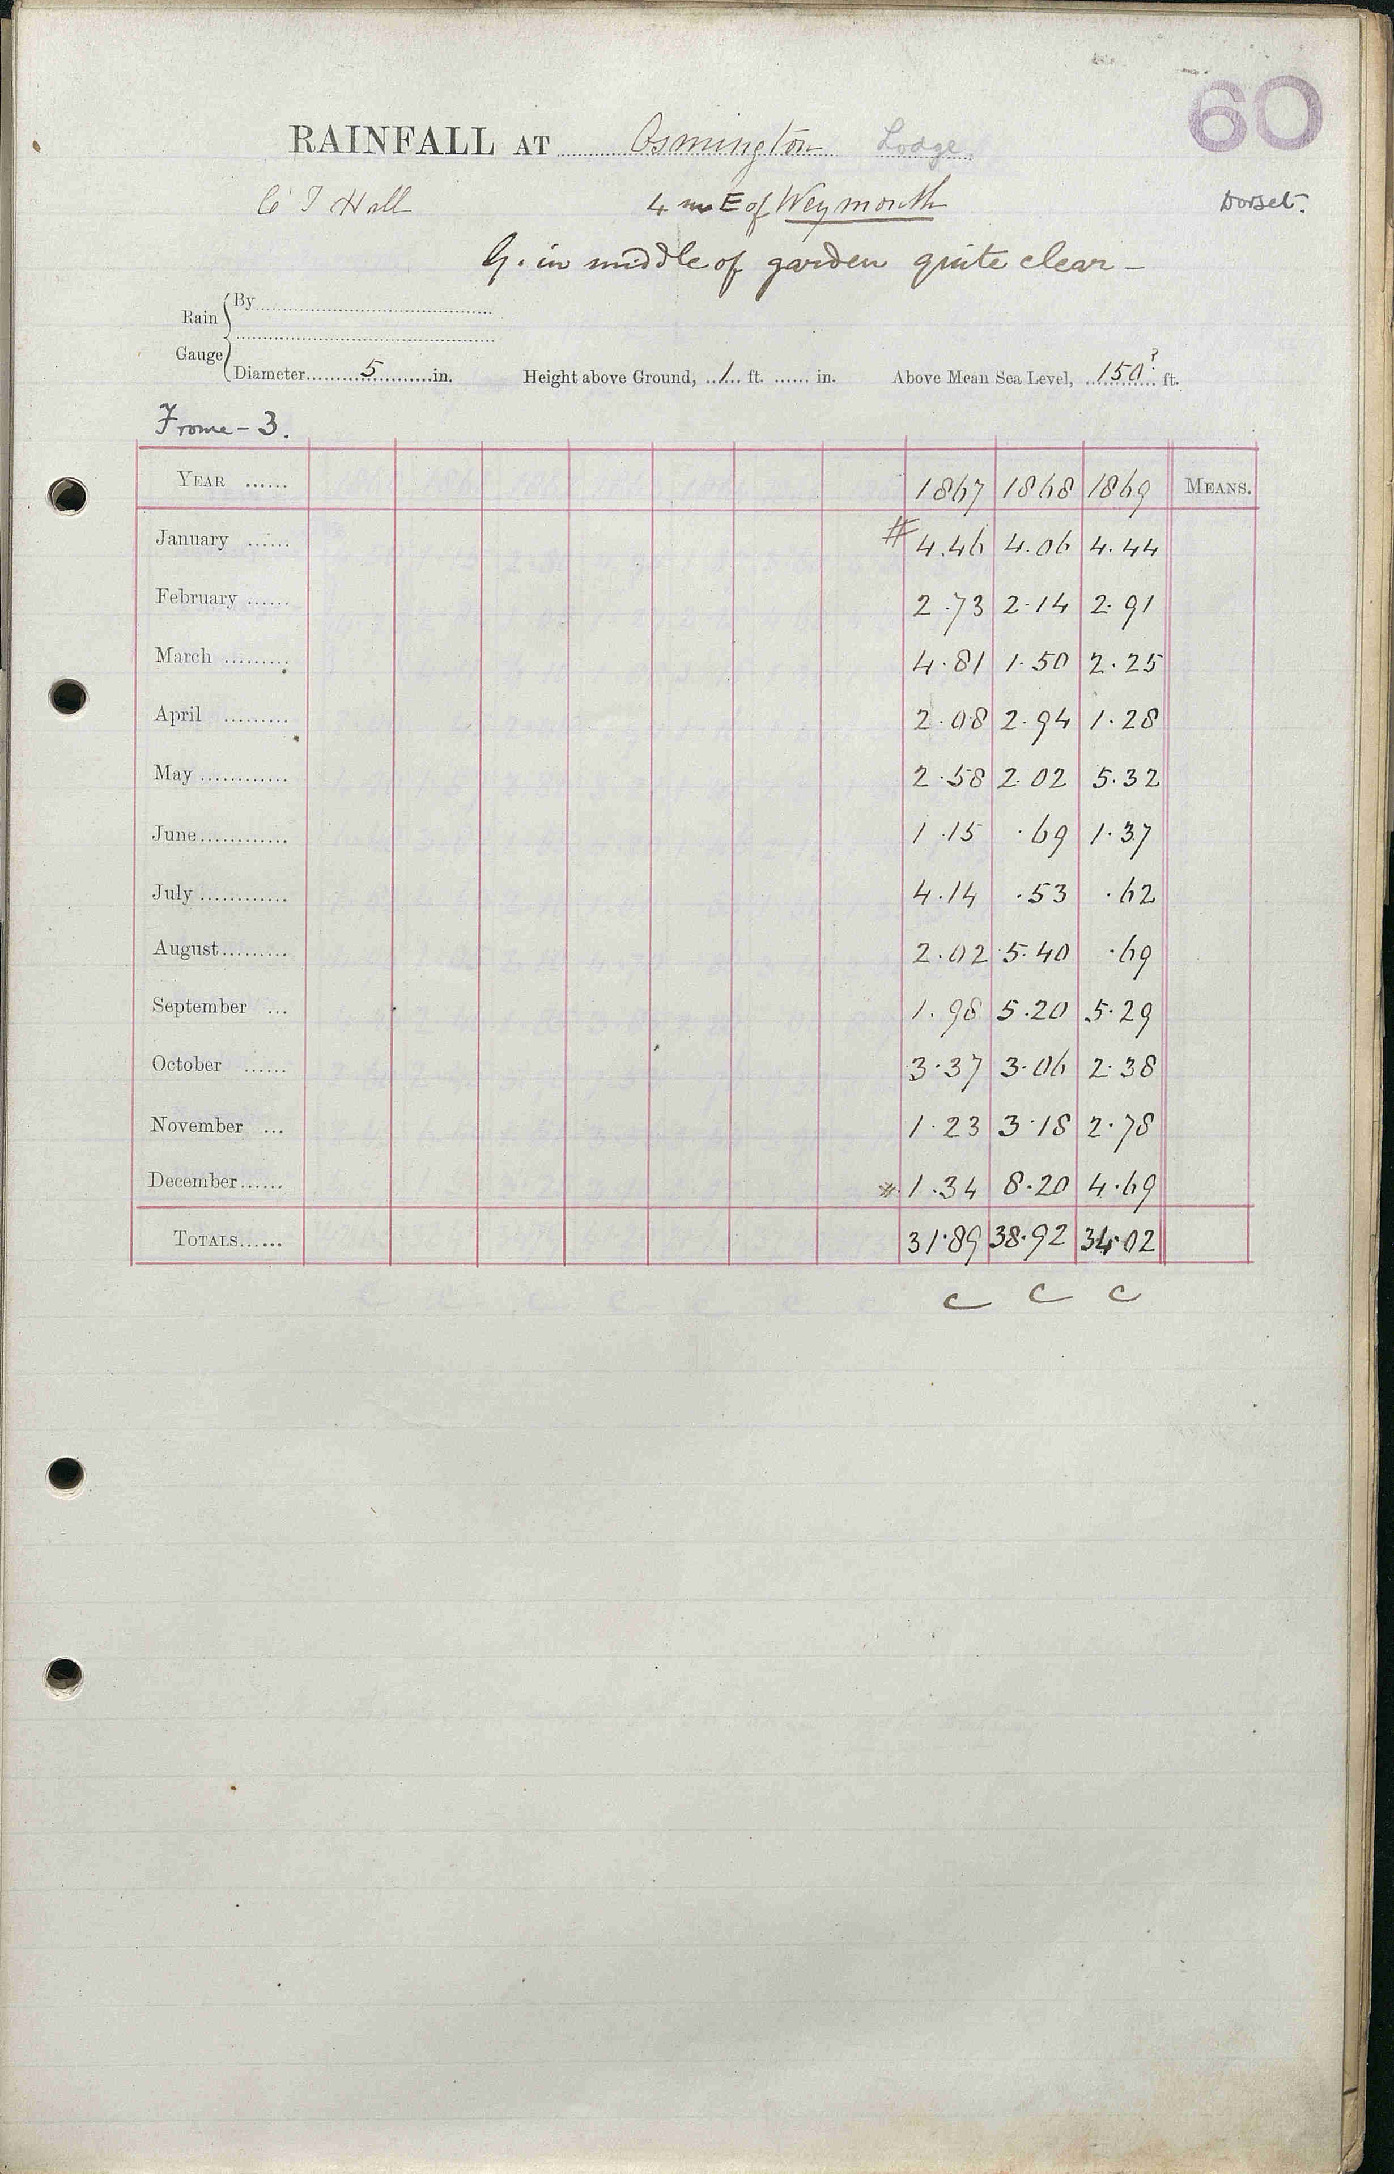 60
RAINFALL AT Osmington Lodge.
C T Hall 4 m E of Weymouth Dorset.
G. in middle of garden quite clear –
Rain Gauge By
Diameter 5 in. Height above Ground, 1 ft. in. Above Mean Sea Level, 150? ft.
Frome – 3.
YEAR 1867 1868 1869 MEANS.
January # 4.46 4.06 4.44
February 2.73 2.14 2.91
March 4.81 1.50 2.25
April 2.08 2.94 1.28
May 2.58 2.02 5.32
June 1.15 .69 1.37
July 4.14 .53 .62
August 2.02 5.40 .69
September 1.98 5.20 5.29
October 3.37 3.06 2.38
November 1.23 3.18 2.78
December # 1.34 8.20 4.69
TOTALS 31.89 38.92 34.02
c c c